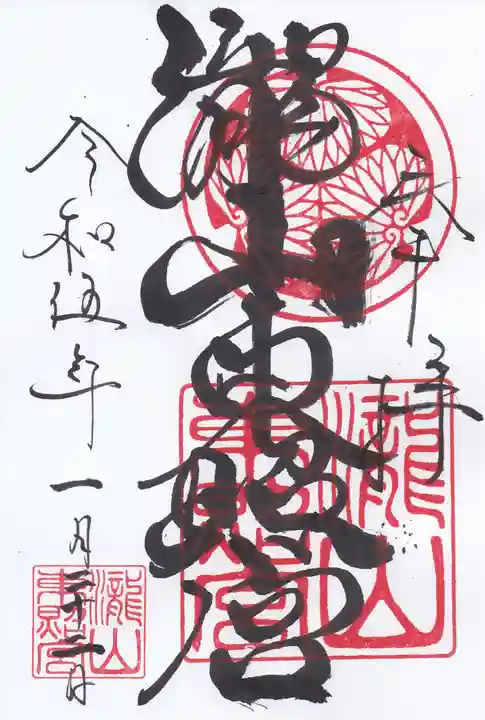 瀧山東照宮
瀧山
東照宮
令和伍年一月二十二日
瀧山
東照宮